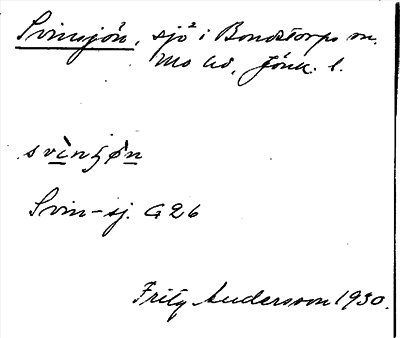 Svinsjön, sjö² i Bondstorps sn.
Mo hd, Jönk. l.
svìnʒø̀n
Svin-sj. G26
Fritz Andersson 1930.